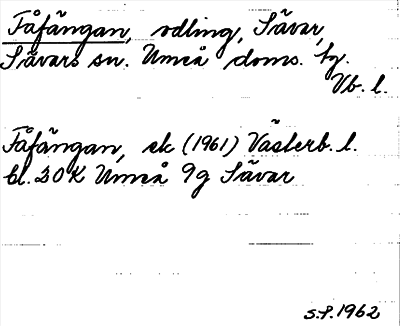 Fåfängan, odling, Sävar,
Sävars sn. Umeå doms. hg.
Vb. l.
Fåfängan, ek (1961) Västerb. l.
bl. 20 K Umeå 9g Sävar
S.P. 1962